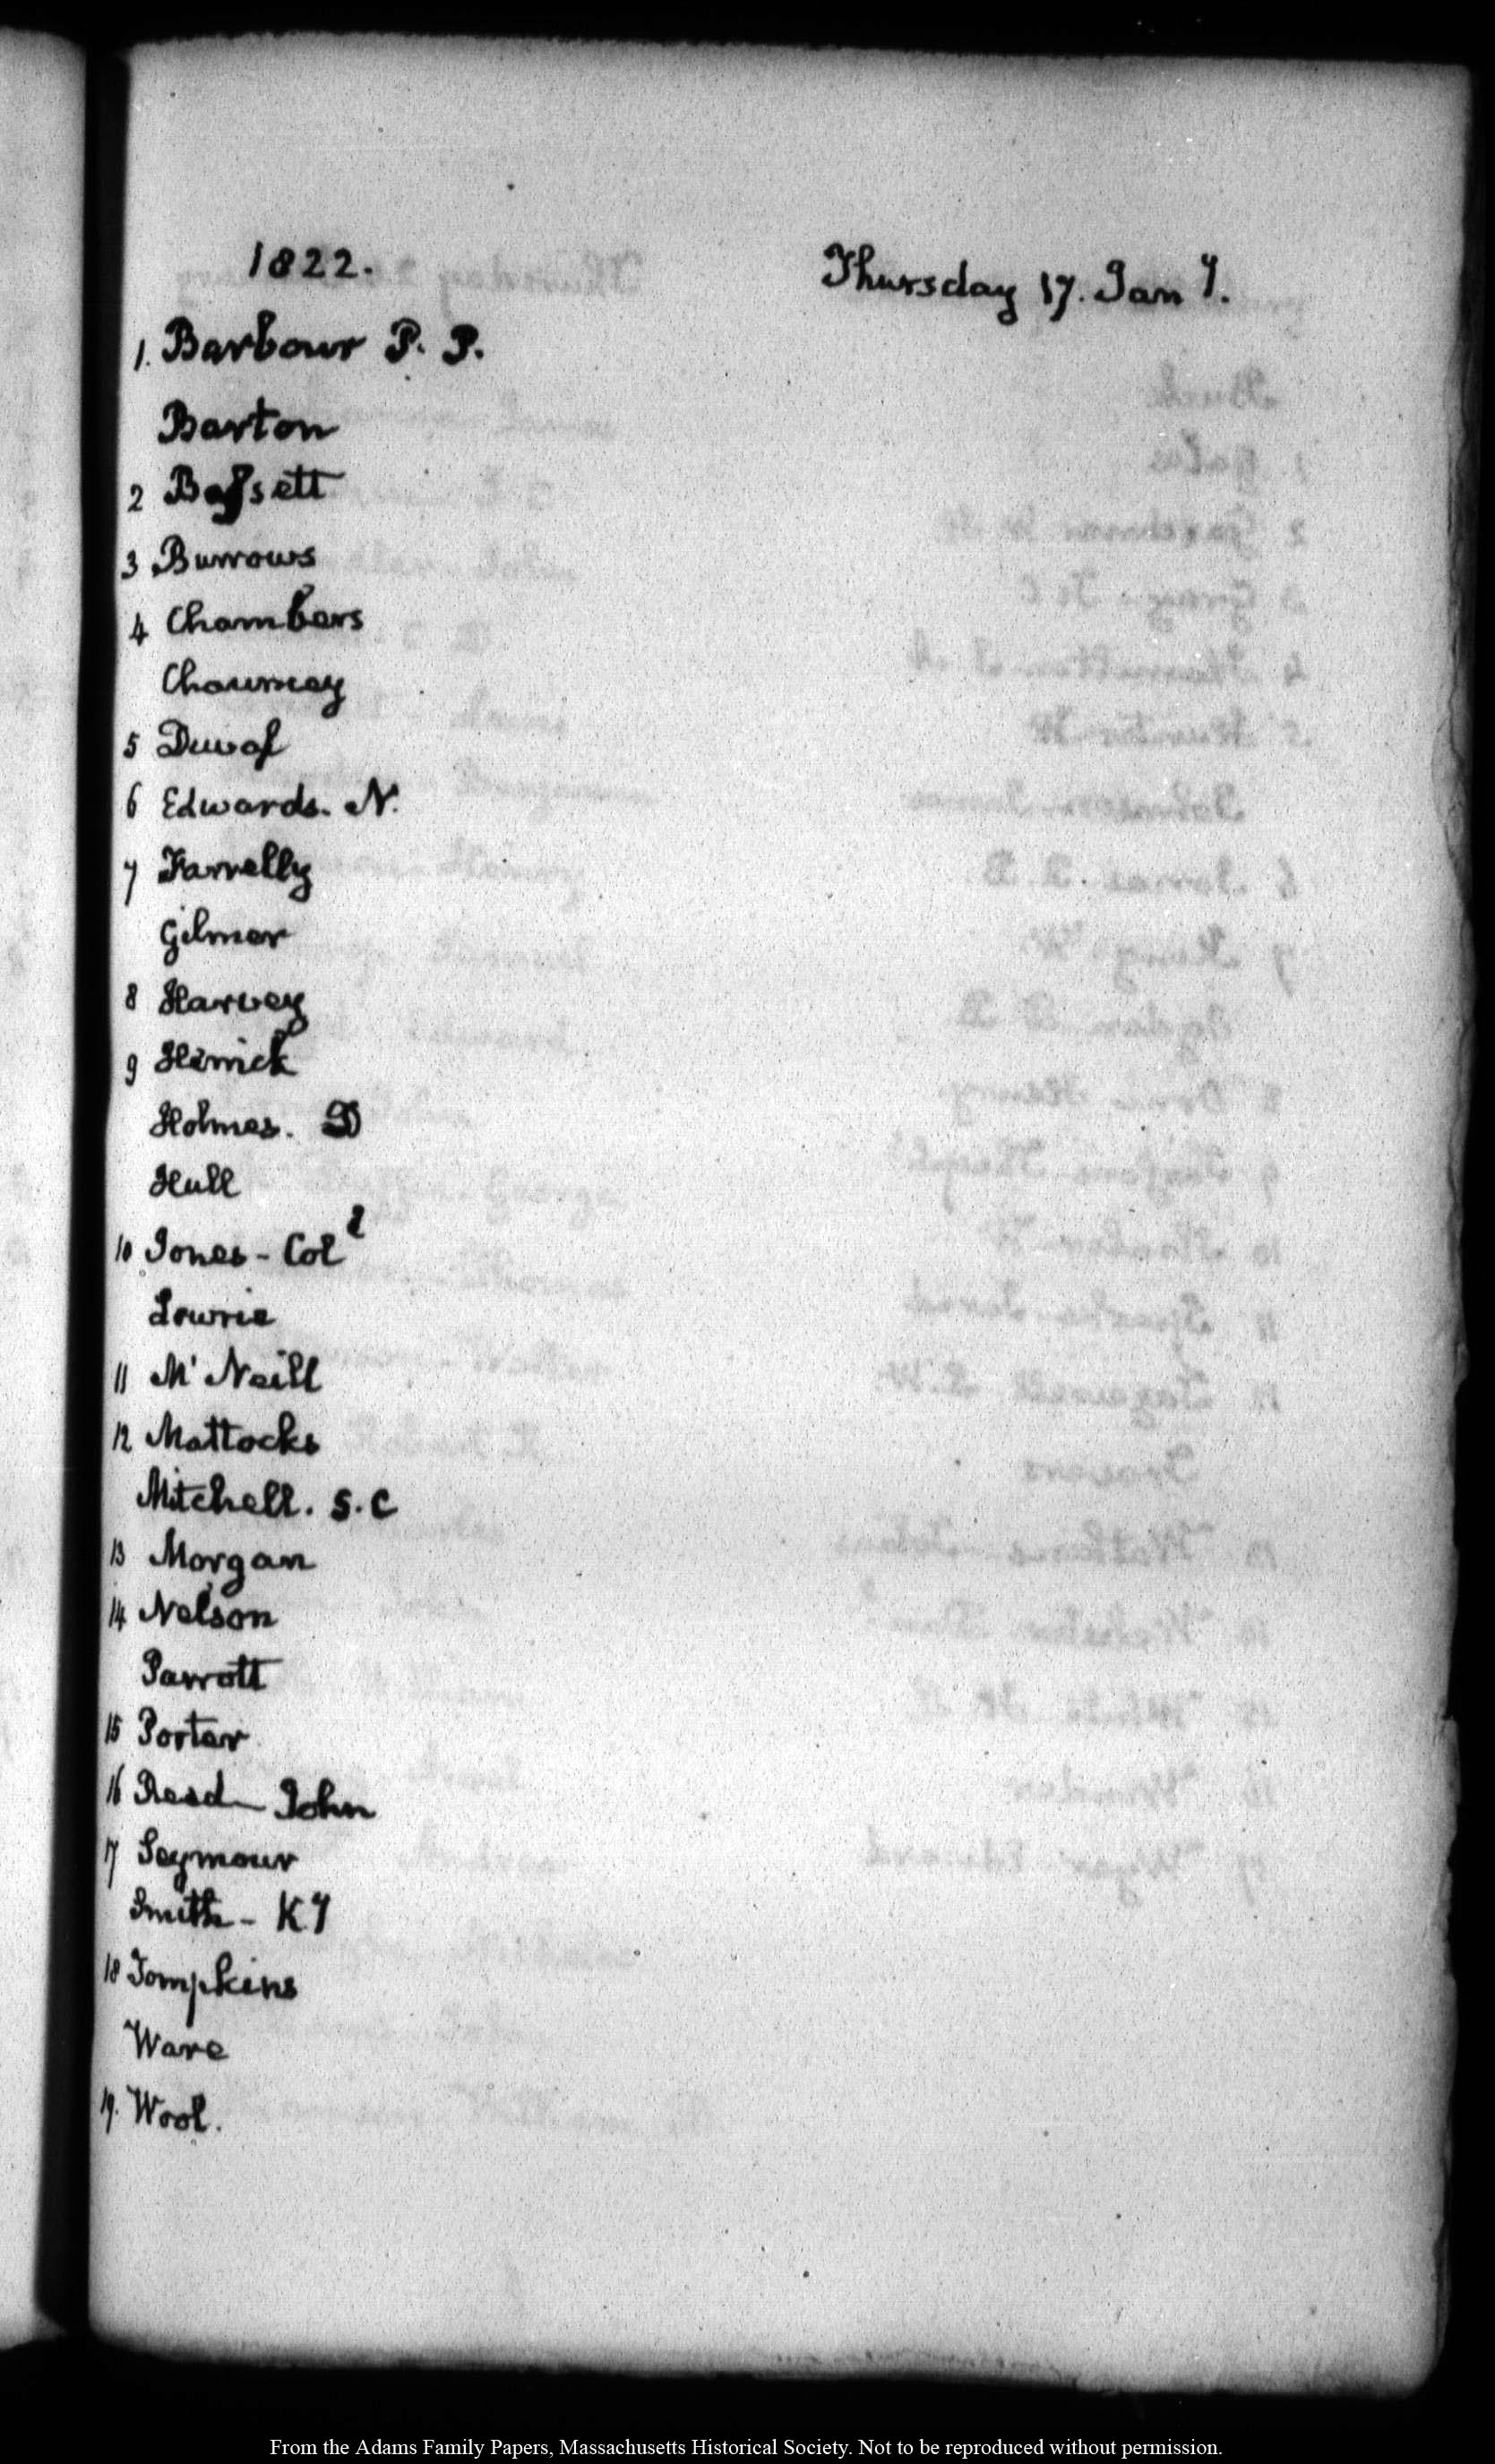 1822. Thursday 17. Jan y.
1. Barbour P. P.
Barton
2 Bassett
3 Burrows
4 Chambers
Chauncey
5 Duval
6 Edwards. N.
7 Farrelly
Gilmer
8 Harvey
9 Herrick
Holmes. D
Hull
10 Jones - Col l
Lowrie
11 Mc Neill
12 Mattocks
Mitchell. S. C
13 Morgan
14 Nelson
Parrott
15 Porter
16 Reed - John
17 Seymour
Smith - Ky
18 Tompkins
Ware
19. Wool.
From the Adams Family Papers, Massachusetts Historical Society. Not to be reproduced without permission.